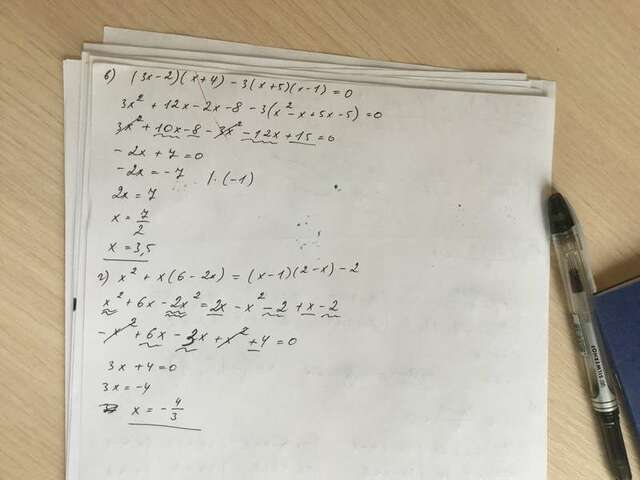 в) (3x-2)(x+4)-3(x+5)(x-1)=0
3x²+12x-2x-8-3(x²-x+5x-5)=0
3x²+10x-8-3x²-12x+15=0
-2x+7=0
-2x=-7 |·(-1)
2x=7
x=7/2
x=3,5
г) x²+x(6-2x)=(x-1)(2-x)-2
x²+6x-2x²=2x-x²-2+x-2
-x²+6x-3x+x²+4=0
3x+4=0
3x=-4
x=-4/3
SILWERHOF